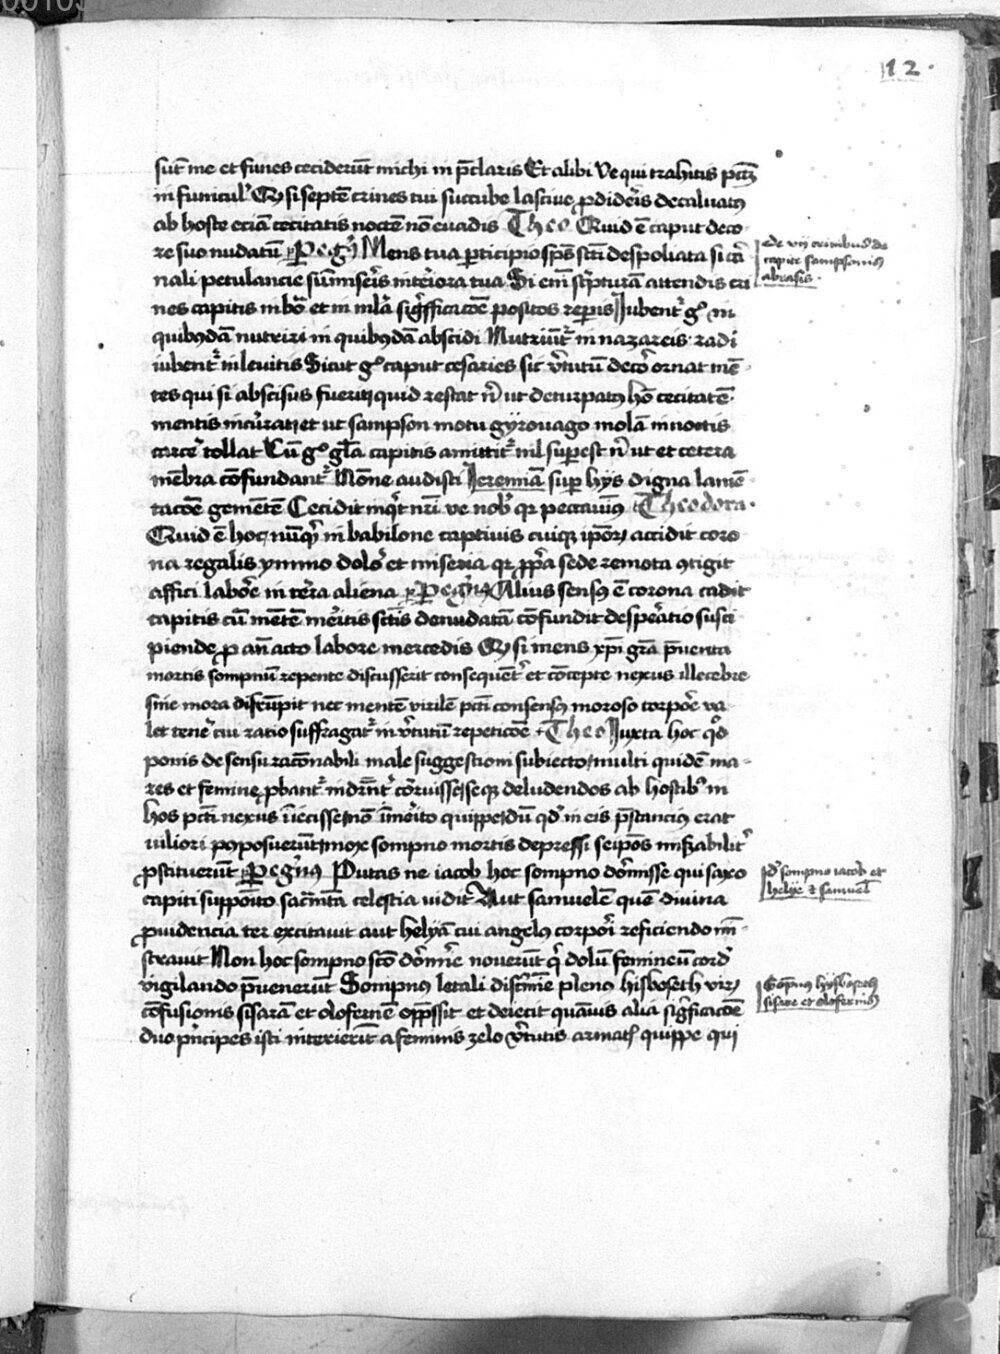 12.
sūt me et funes ceciderūt michi in p̄claris Et alibi Ve qui trahitis pctm̄
in funicul' Qr si septē crines tui succube lascive ꝑdideris decalvatus
ab hoste eciā cecitatis noctē nō evadis Theo Quid ē caput deco
re suo nudatū Pegr' Mens tua participio sps sc̄i despoliata si car
nali petulancie sūmiseris interiora tua Si em̄ scripturā attendis cri
nes capitis in bōa et in mala significacōe positos reperis Jubent' g° in
quibusdā nutriri in quibusdā abscidi Nutriunt' in nazareis radi
iubent' in levitis Sicut g° caput cesaries sic v̓tutū decor ornat mē
tes qui si abscisus fuerit quid restat n̄ ut deturpatus hō cecitatē
mentis incurrat et ut sampson motu gyrovago molā in noctis
carcere tollat Cū g° gl̄a capitis amittit' nil superest n̄ ut et cetera
mēbra confundant' Nonne audisti Jeremiā super hys digna lamē
tacōe gementē Cecidit inquit nr̄i ve nob' qr peccavimus Theodora.
Quid ē hoc nūquid in babilone captivis cuiquam ipor̄ accidit coro
na regalis ymmo dolor et miseria qr ꝓpria sede remota ɔtigit
affici labore in terra aliena Pegrinus Alius sensus ē corona cadit
capitis cū mentē meritis sc̄tis denudatā cōfundit desperatio susci
piende ꝓ an̄ acto labore mercedis Qr si mens xp̄i gr̄a p̄venta
mortis sompnū repente discusserit consequent' et cōcepte nexus illecebre
sine mora disrūpit nec mentē virilē pcti consensus moroso torpore va
let tenere cui ratio suffragat' in v̓tutū repeticōe Theo Juxta hoc qd̄
ponis de sensu racōnabili male suggestioni subiecto multi quidē ma
res et femine ꝓbant' indurunt' corruisse seque deludendos ab hostib' in
hos pcti nexus iniecisse nō īmerito quippe dū qd' in eis p̄stancius erat
viliori postposuerūt mox sompno mortis depressi seipos miserabilit'
ꝓstituerūt Pegr'nus Putas ne iacob hoc sompno dormisse qui saxo
capiti supposito sacramēta celestia vidit Aut samuelē quē divina
ꝓvidencia ter excitavit aut helyā cui angelus corpori reficiendo mi
stravit Non hoc sompno sc̄o dormire noverūt q' dolū femineū cord'
vigilando p̄venerunt Sompnus letali discrimine plenus hisboseth vir
cōfusionis sisarā et olofernē opp̄ssit et deiecit quāvis alia significacōe
duo principes isti interierūt a feminis zelo v̓tutis armatis quippe qui
De vii crinibus de
capite sampsonis
abrasis.
Id' sompno iacob et
helye et samuel'
Sōpnus hysboseth
sisare et olofernis